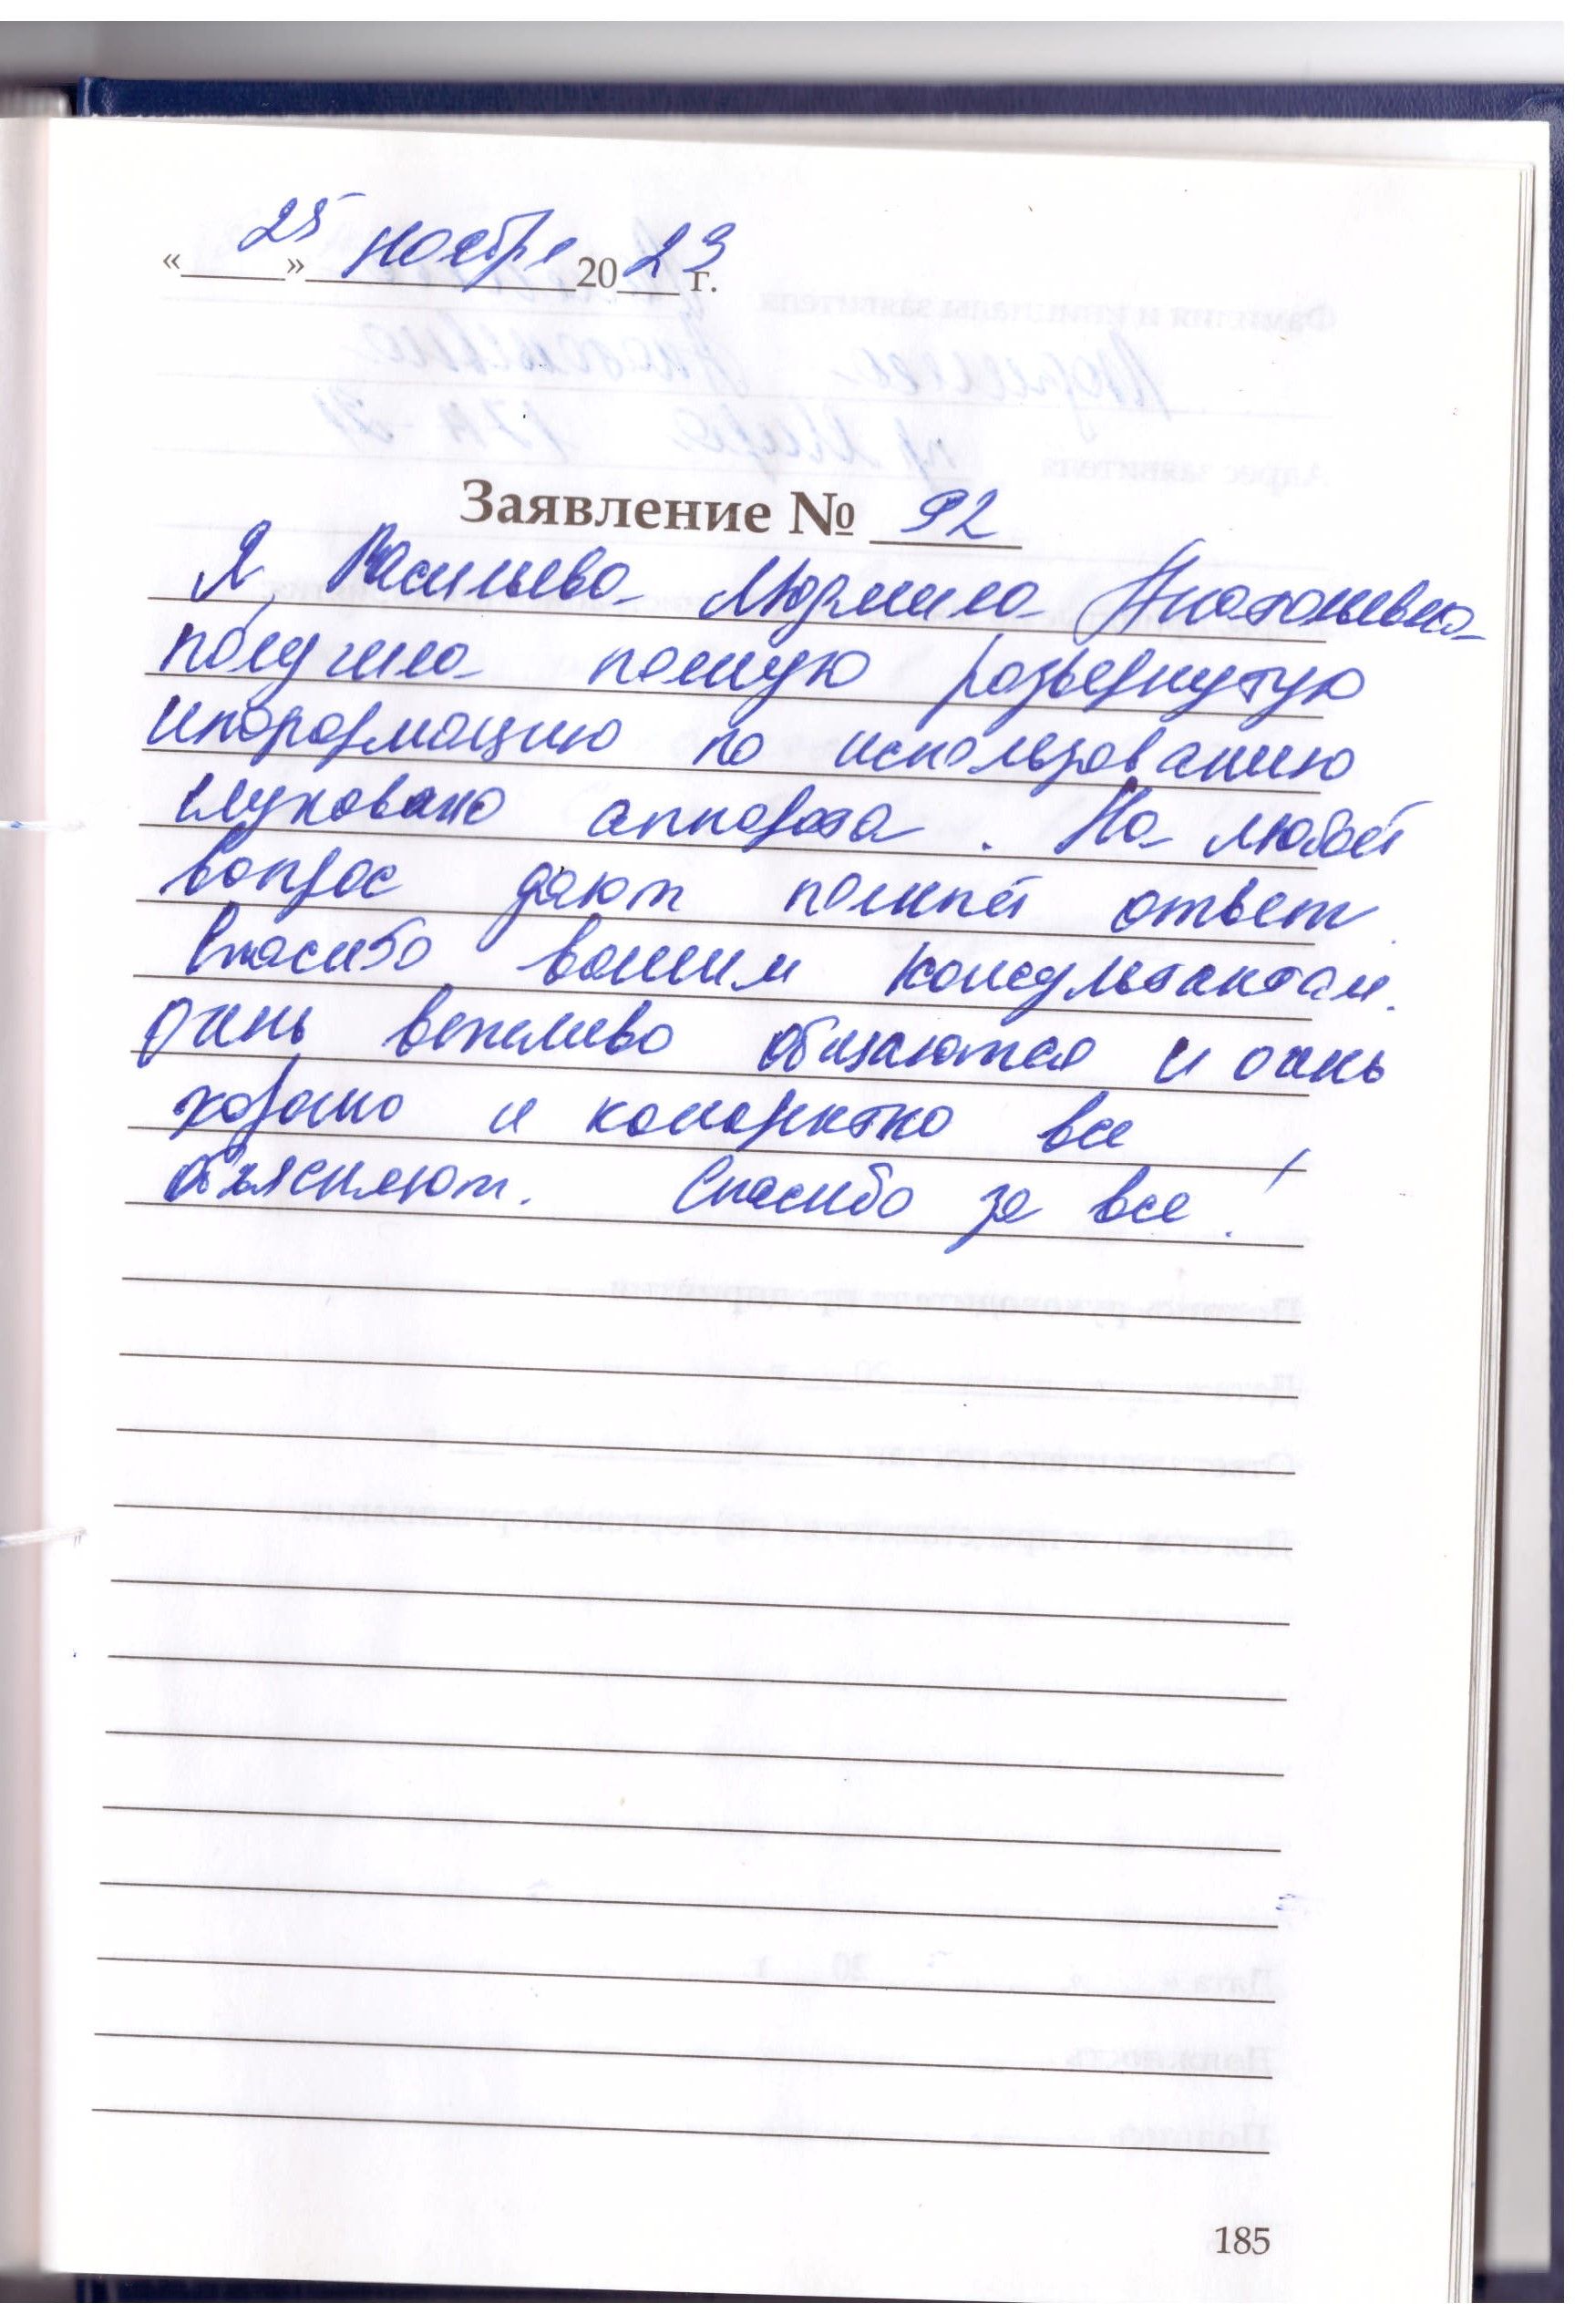 «25» ноября 2023 г.
Заявление № 92
Я, Васильева Людмила Анатольевна
получила полную развернутую
информацию по использованию
слухового аппарата. На любой
вопрос дают полный ответ.
Спасибо вашим консультантам.
Очень вежливо общаются и очень
хорошо и конкретно все
объясняют. Спасибо за все!
185